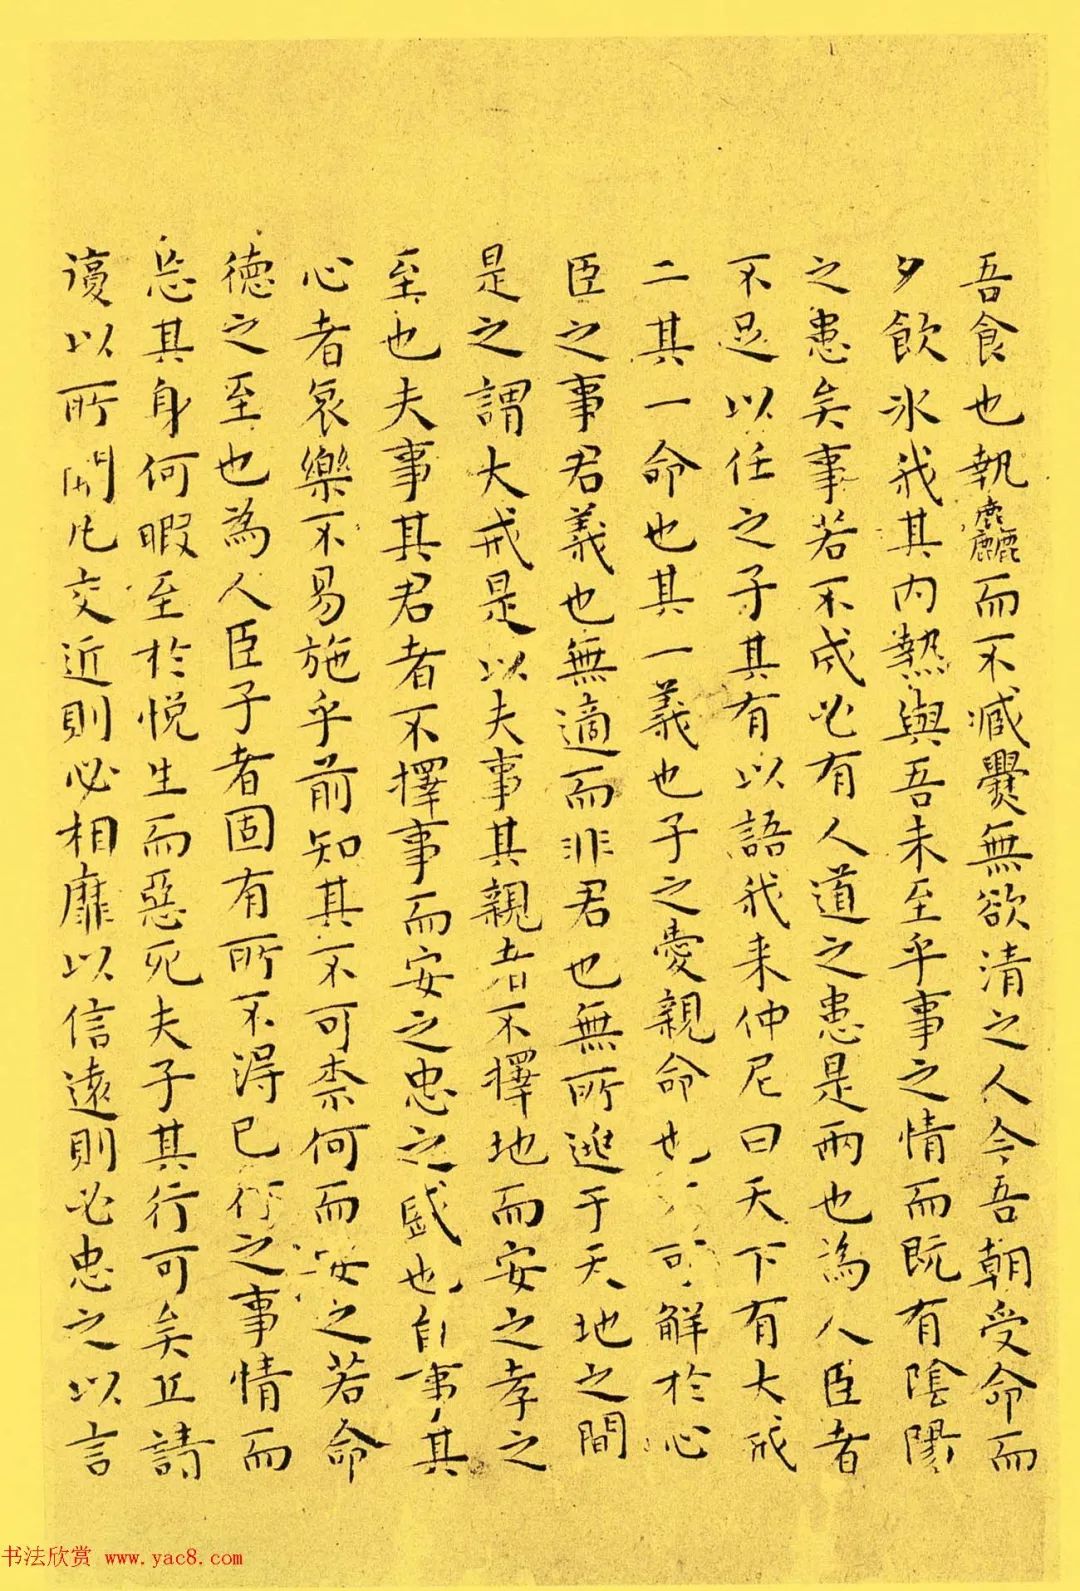 吾食也執麤而不臧爨無欲清之人今吾朝受命而
夕飲冰我其内熱與吾未至乎事之情而既有陰陽
之患矣事若不成必有人道之患是兩也為人臣者
不足以任之子其有以語我来仲尼曰天下有大戒
二其一命也其一義也子之愛親命也可解於心
臣之事君義也無適而非君也無所逃于天地之間
是之謂大戒是以夫事其親者不擇地而安之孝之
至也夫事其君者不擇事而安之忠之盛也自事其
心者哀樂不易施乎前知其不可柰何而安之若命
德之至也為人臣子者固有所不得已行之事情而
忘其身何暇至於悅生而惡死夫子其行可矣丘請
復以所聞凡交近則必相靡以信遠則必忠之以言
书法欣赏 www.yac8.com